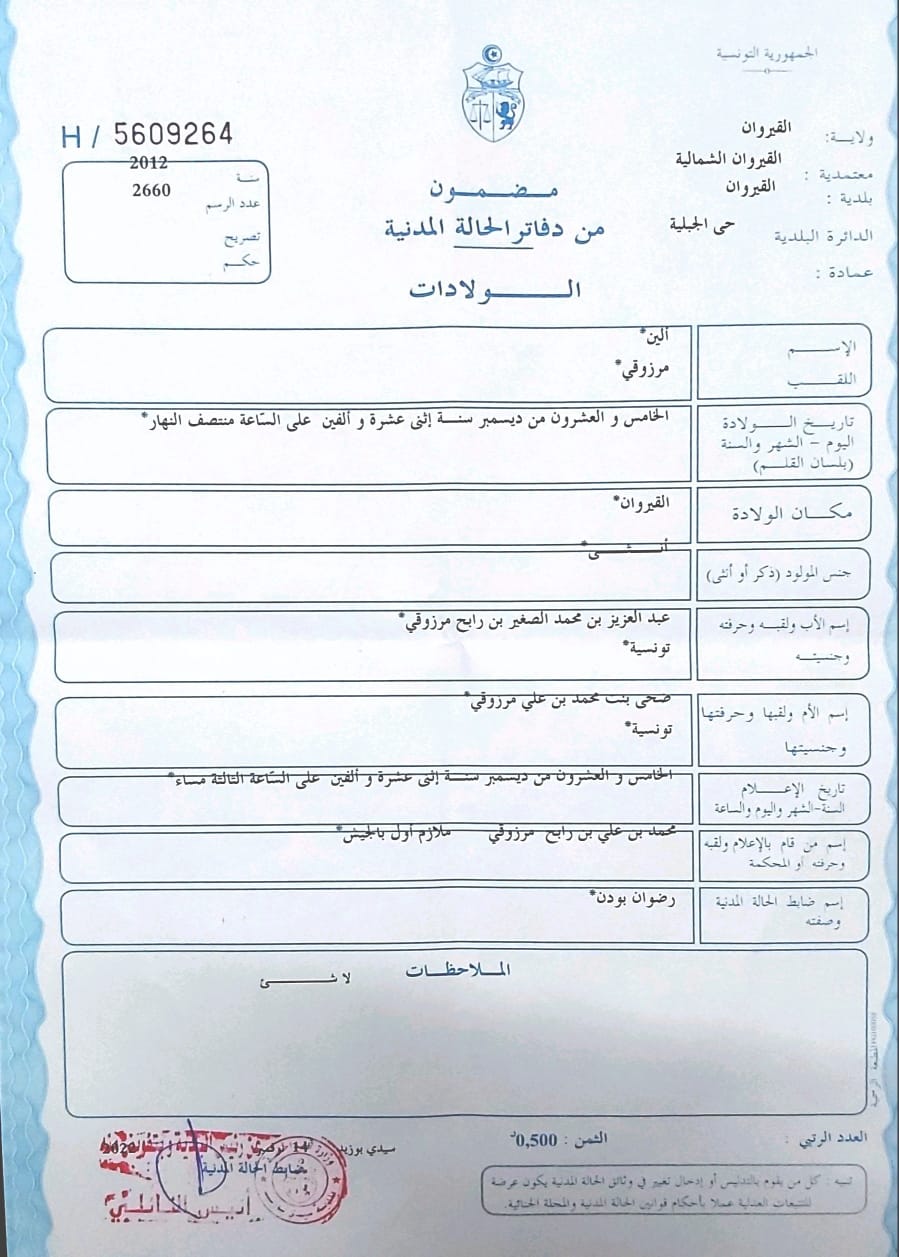 الجمهورية التونسية
ولاية: القيروان
معتمدية : القيروان الشمالية
بلدية : القيروان
الدائرة البلدية حى الجبلية
عمادة :
H / 5609264
سنة 2012
عدد الرسم 2660
تصريح
حكم
مضمون
من دفاتر الحالة المدنية
الولادات
الإسم ألين*
اللقب مرزوقي*
تاريخ الولادة الخامس و العشرون من ديسمبر سنة إثنى عشرة و ألفين على السّاعة منتصف النهار*
اليوم - الشهر والسنة
(بلسان القلم)
مكان الولادة القيروان*
جنس المولود (ذكر أو أنثى) أنثى*
إسم الأب ولقبه وحرفته عبد العزيز بن محمد الصغير بن رابح مرزوقي*
وجنسيته تونسية*
إسم الأم ولقبها وحرفتها ضحى بنت محمد بن علي مرزوقي*
وجنسيتها تونسية*
تاريخ الإعلام الخامس و العشرون من ديسمبر سنة إثنى عشرة و ألفين على السّاعة الثالثة مساء*
السنة-الشهر واليوم والساعة
إسم من قام بالإعلام ولقبه محمد بن علي بن رابح مرزوقي ملازم أول بالجيش*
وحرفته أو المحكمة
إسم ضابط الحالة المدنية رضوان بودن*
وصفته
الملاحظات لا شئ
العدد الرتبي : الثمن : 0,500د
تنبيه : كل من يقوم بالتدليس أو إدخال تغيير في وثائق الحالة المدنية يكون عرضة
للتتبعات العدلية عملا بأحكام قوانين الحالة المدنية والمجلة الجنائية.
سيدي بوزيد 14 نوفمبر
ضابط الحالة المدنية
المطبعة الرسمية